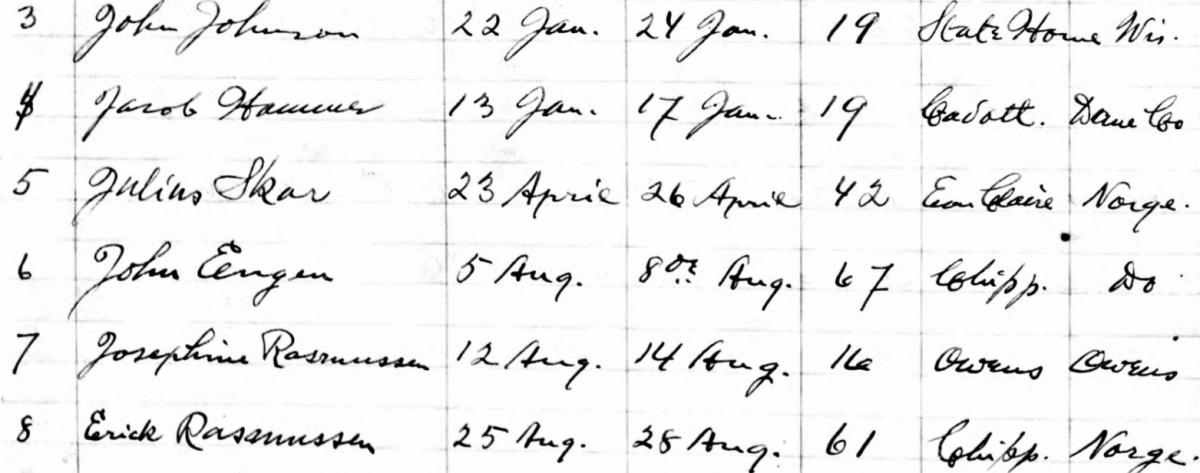 3 John Johnson 22 Jan. 24 Jan. 19 State Home Wis.
4 Jacob Hammer 13 Jan. 17 Jan. 19 Cadott. Dane Co
5 Julius Skar 23 April 26 April 42 Eau Claire Norge.
6 John Eengen 5 Aug. 8de Aug. 67 Chipp. Do
7 Josephine Rasmussen 12 Aug. 14 Aug. Owens Owens
8 Erick Rasmussen 25 Aug. 28 Aug. 61 Chipp. Norge.